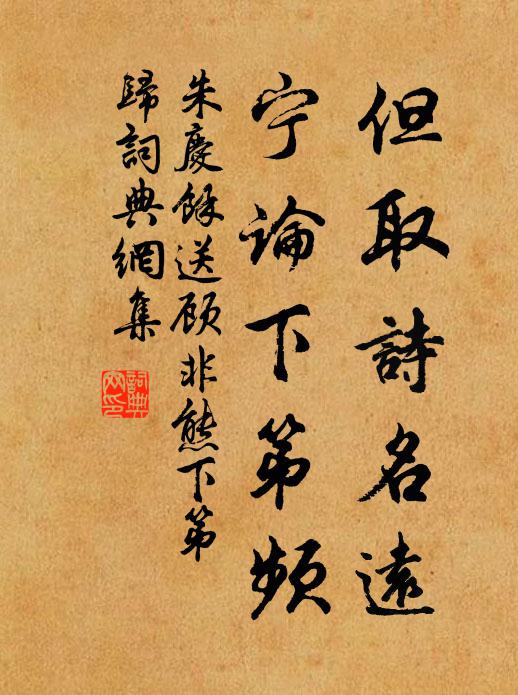 但取詩名遠
宁論下第頻
朱慶餘送顾非熊下第
歸詞典網集
詞典
网印